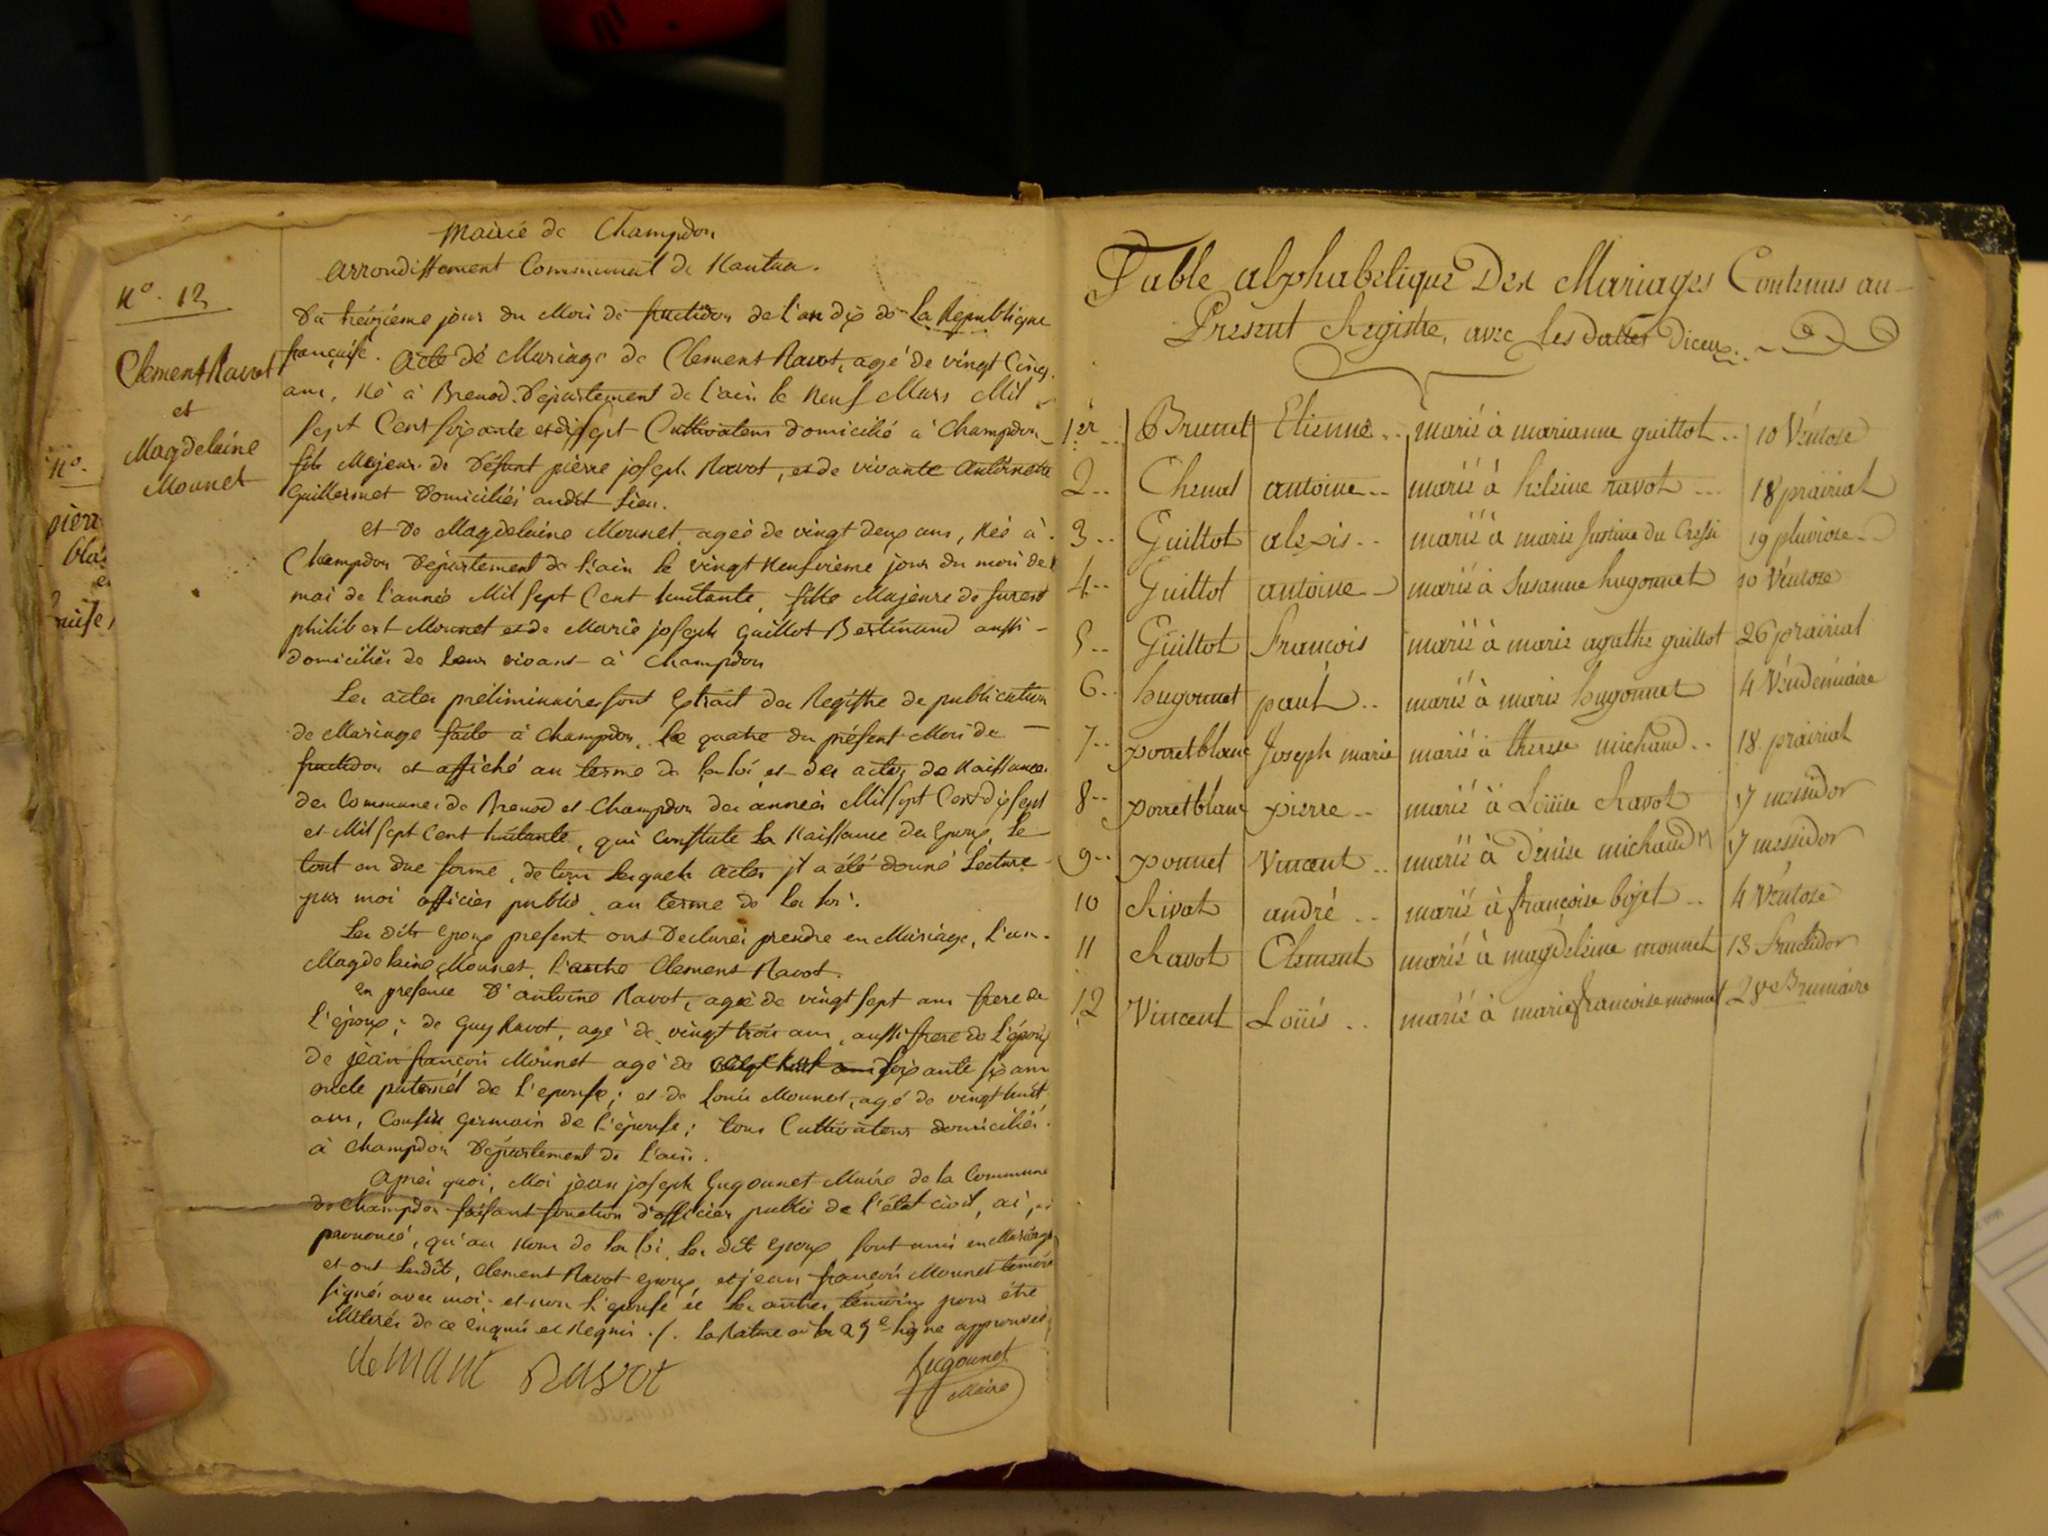 Mairie de Champdor
arrondissement Communal de Nantua.
N°. 12
Clement Ravot
et
Magdelaine
Mounet
N°
pierr
Du treizieme jour du Mois de fructidor de l'an dix de La Republique
française. Acte de Mariage de Clement Ravot, agé de vingt Cinq
ans, Né à Brenod Département de l'ain le Neuf Mars Mil
sept Cent soixante et dix sept Cultivateur domicilié à Champdor
fils Majeur de Défunt pierre joseph Ravot, et de vivante Antoinette
Guillermet Domiciliés audit Lieu.
et De Magdelaine Mounet, ageé de vingt deux ans, Neé à
Champdor Département de l'ain le vingt Neufvieme jour du mois de
mai de l'année Mil sept Cent huitante, fille Majeure de furent
philibert Mounet et de Marie joseph Guillot Bertinand aussi
domiciliés de Leur vivant à Champdor
Les actes préliminaires sont Extrait des Registre de publication
de Mariage faite à Champdor, Le quatre du présent Mois de
fructidor et affiché au terme de la loi et des actes de Naissance
des Communes de Brenod et Champdor des années Mil sept Cent dix sept
et Mil sept Cent huitante, qui Constate La Naissance des Epoux, Le
tout en due forme, de tous Lesquels actes jl a été donné Lecture
par moi officier public au terme de la loi.
Les dits Epoux présent ont Declarés prendre en Mariage, L'un
Magdelaine Mounet, L'autre Clement Ravot.
En presence D'antoine Ravot, ageé de vingt sept ans frere de
L'époux; de Guy Ravot, agé de vingt trois ans, aussi frere de L'époux
de jean françois Mounet agé de vingt huit ans soixante six ans
oncle paternel de L'epouse; et de Louis Mounet, agé de vingt huit
ans, Cousin Germain de L'épouse; tous Cultivateurs domiciliés
à Champdor Département de L'ain.
Après quoi, Moi jean joseph hugonnet Maire de la Commune
de Champdor faisant fonction d'officier public de l'état civil, ai
prononcé, qu'au Nom de la loi, Les dits Epoux sont unis en Mariage
et ont Lesdits, Clement Ravot epoux, et jean françois Mounet temoin
signés avec moi et non L'epouse et les autres témoins pour être
illiterés de ce Enquis et Requis ./. La Rature à la 25e ligne approuvés
clemant Ravot
hugonnet
Maire
Table alphabetique Des Mariages Contenus au
Present Registre, avec Les dattes Diceux.
1er Brunet Etienne .. marié à marianne guillot .. 10 Ventose
2 .. Chenal antoine .. marié à heleine ravot ... 18 prairial
3 .. Guillot alexis .. marié à marie Justine du Cressi 19 pluviose
4 .. Guillot antoine marié à Susanne hugonnet 10 Ventose
5 .. Guillot francois marié à marie agathe guillot 26 prairial
6 .. hugonnet paul .. marié à marie hugonnet 4 Vendemiaire
7 .. porretblanc Joseph marie marié à therese michaud .. 18 prairial
8 .. porretblanc pierre .. marié à Loüise Ravot 7 messidor
9 .. ponnet Vincent .. marié à denise michaud 7 messidor
10 Rivat andré .. marié à françoise bijet .. 4 Ventose
11 Ravot Clement marié à magdeleine mounet 13 fructidor
12 Vincent Loüis .. marié à marie francoise mounet 28 Brumaire